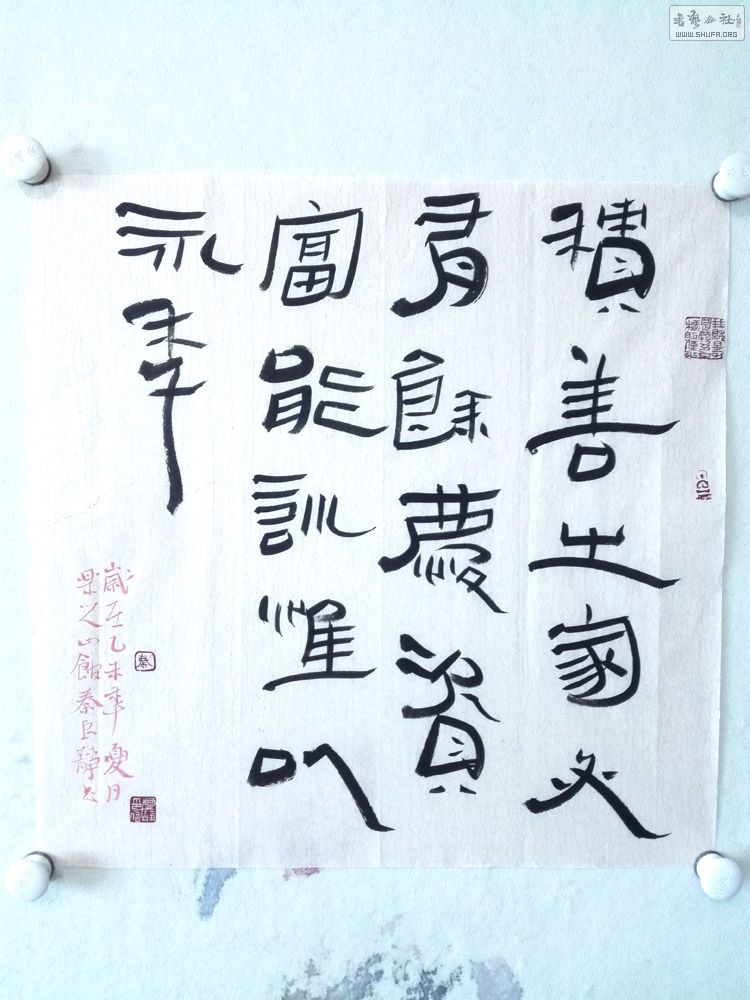 積善之家必
有餘慶資
富能訓惟以
永年
歲在乙未年夏日
之山館秦
秦
书艺公社
WWW.SHUFA.ORG